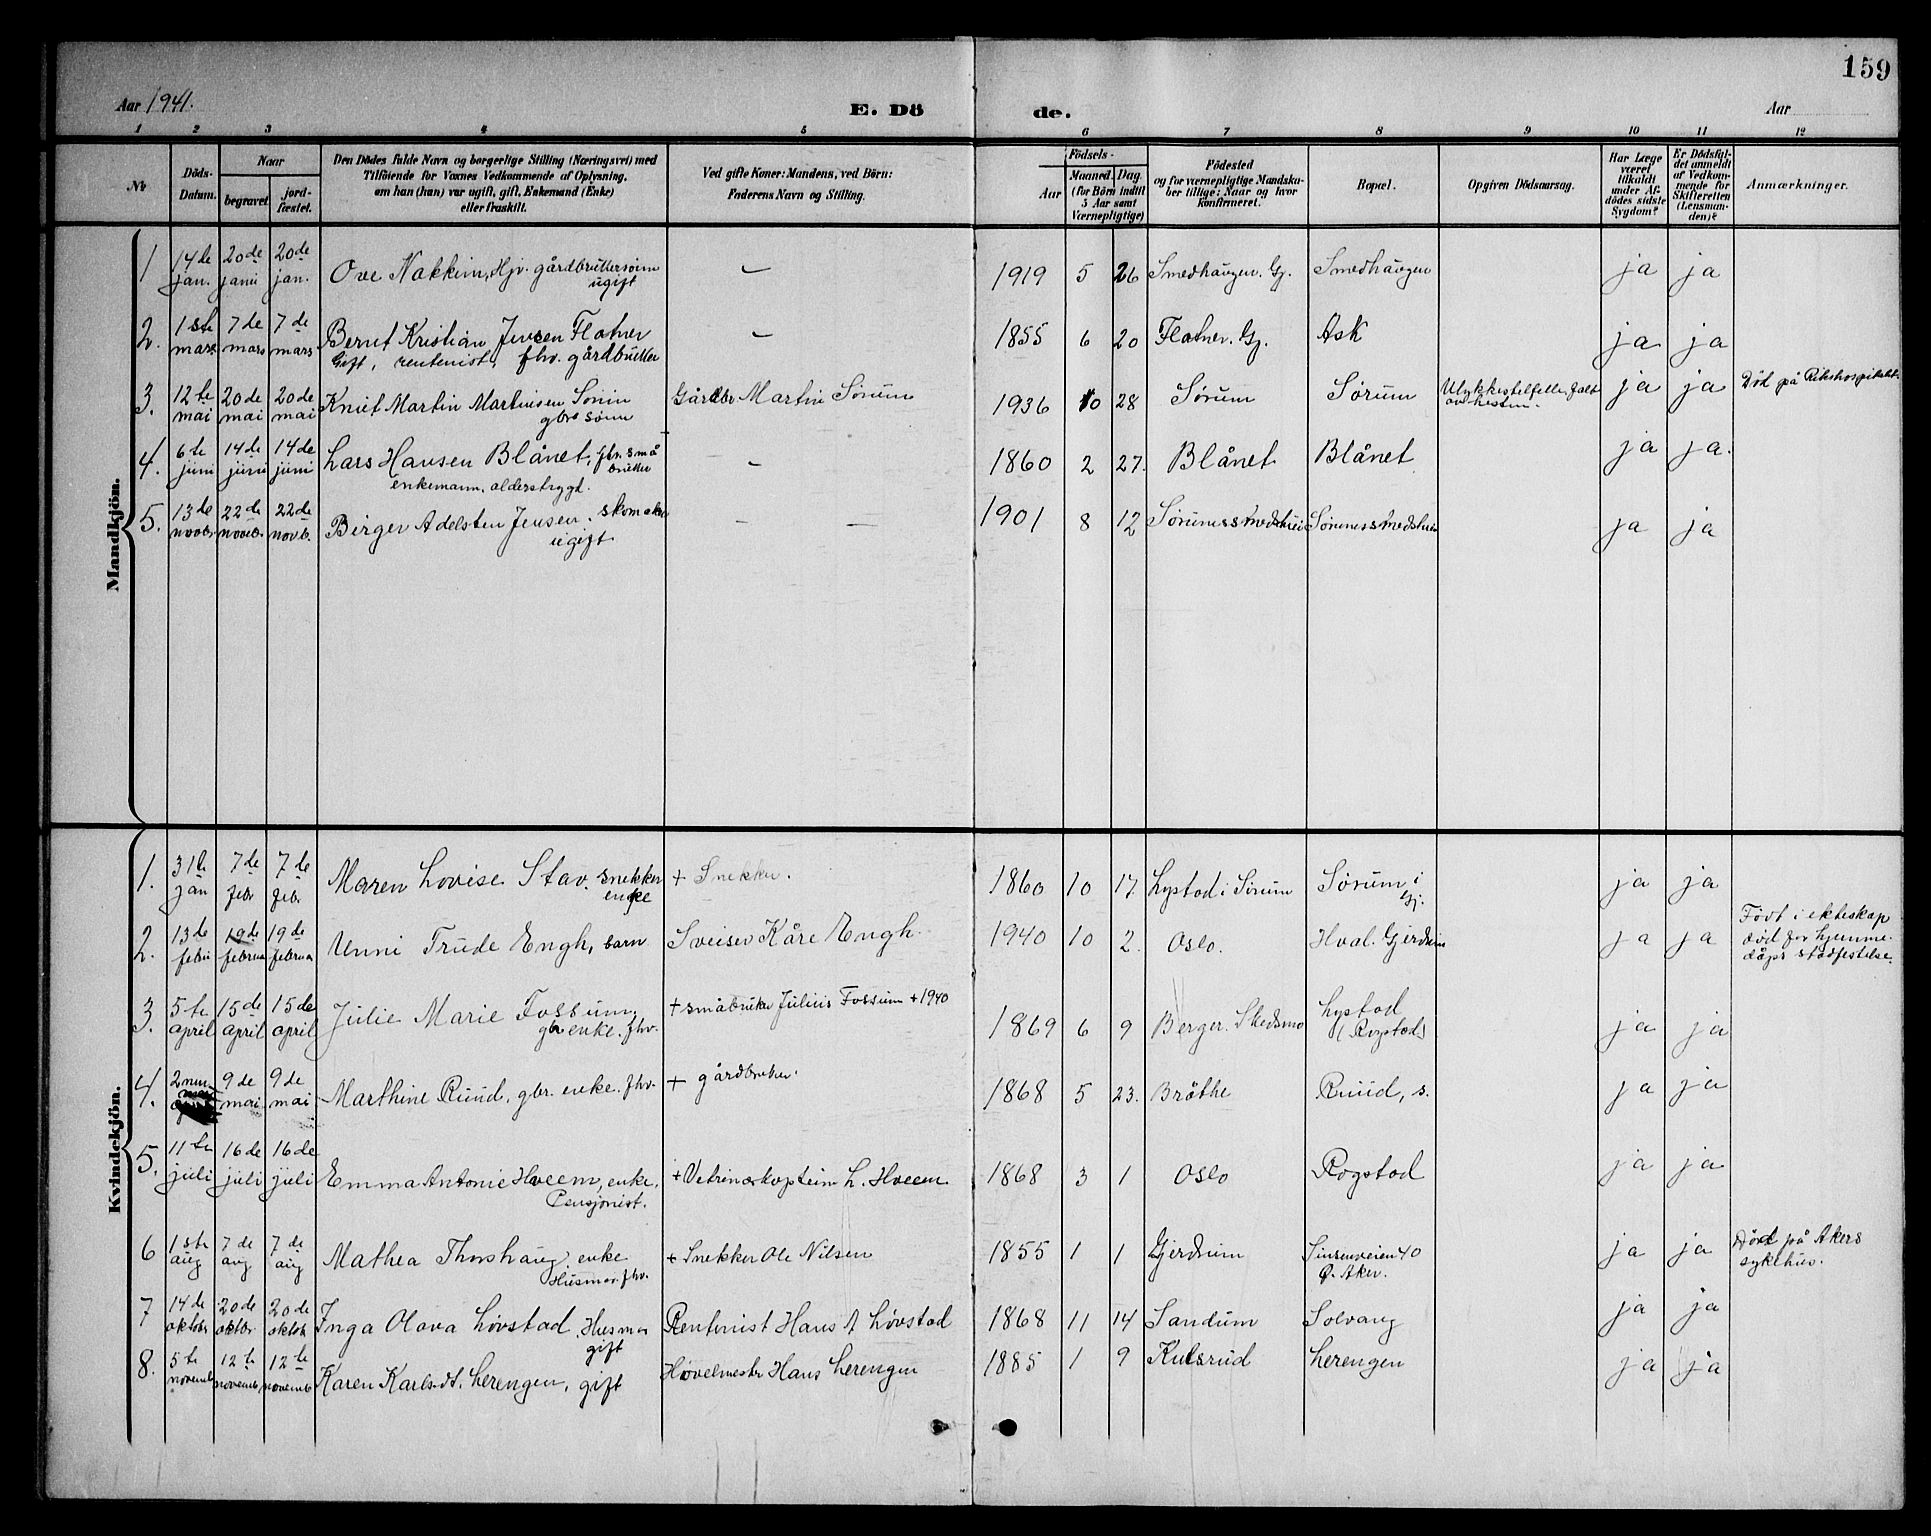 159
Aar 1941.
E. Dö de.
Aar
1 2 3 4 5 6 7 8 9 10 11 12
№
Döds-Datum.
Naar
begravet.
jord-fæstet.
Den Dödes fulde Navn og borgerlige Stilling (Næringsvei) med
Tilföiende for Voxnes Vedkommende af Oplysning,
om han (hun) var ugift, gift, Enkemand (Enke)
eller fraskilt.
Ved gifte Koner: Mandens, ved Börn:
Faderens Navn og Stilling.
Födsels-
Aar
Maaned. Dag.
(for Börn indtil
5 Aar samt
Værnepligtige)
Födested
og for værnepligtige Mandska-
ber tillige: Naar og hvor
konfirmeret.
Bopæl.
Opgiven Dödsaarsag.
Har Læge
været
tilkaldt
under Af-
dödes sidste
Sygdom?
Er Dödsfal-
det anmeldt
af Vedkom-
mende for
Skifteretten
(Lensman-
den)?
Anmærkninger.
Mandkjön.
1 14de jan. 20de janu 20de jan. Ove Nakkim, Hjv. gårdbrukersønn ugift — 1919 5 26 Smedhaugen. Gj. Smedhaugen ja ja
2. 1ste mars 7de mars 7de mars Bernt Kristian Jensen Flatner Gift, rentenist, fhv. gårdbruker — 1855 6 20 Flatner. Gj. Ask ja ja
3. 12te mai 20de mai 20de mai Knut Martin Martinsen Sørum gbr sønn Gårdbr Martin Sørum 1936 10 28 Sørum Sørum Ulykkestilfelle, falt av hesten. ja ja Død på Rikshospitalet.
4. 6te juni 14de juni 14de juni Lars Hansen Blånet, fhv. små bruker enkemann, alderstrygd. — 1860 2 27. Blånet Blånet ja ja.
5. 13de novbr 22de novbr. 22de novb. Birger Adelsten Jensen. skomaker ugift — — 1901 8 12 Sørumssmedshus Sørumssmedshus ja ja
Kvindekjön.
1. 31te jan 7de febr 7de febr. Maren Lovise Stav. snekker enke + Snekker. 1860 10 17 Lystad i Sørum Sørum i Gj. ja ja
2. 13de febru 19de februa 19de februa Unni Trude Engh, barn Sveiser Kåre Engh. 1940 10 2. Oslo. Hval. Gjerdrum ja ja Født i ekteskap død før hjemme-dåps stadfestelse.
3. 5te april 15de april 15de april Julie Marie Fossum, gbr enke. fhv. + småbruker Julius Fossum + 1940 1869 6 9 Berger. Skedsmo Lystad (Rogstad) ja ja
4. 2nen mai 9de mai 9de mai Marthine Ruud, gbr. enke. fhv. + gårdbruker. 1868 5 23. Bråthe Ruud, s. ja ja
5. 11te juli 16de juli 16de juli Emma Antonie Hveem, enke, Pensjonist. + Vetrinærkaptein L. Hveem 1868 3 1 Oslo Rogstad ja ja
6 1ste aug 7de aug 7de aug Mathea Thorshaug, enke Husmor. fhv. + Snekker Ole Nilsen 1855 1 1 Gjerdrum Sinsenveien 40 Ø. Aker. ja ja Død på Akers sykehus.
7 14de oktobr 20de oktbr 20de oktob Inga Olava Løvstad, Husmor gift Rentenist Hans A Løvstad 1868 11 14 Sandum Solvang ja ja
8. 5te novemb 12te novemb. 12te novemb Karen Karlsdt. Lerengen, gift Høvelmester Hans Lerengen 1885 1 9 Kulsrud Lerengen ja ja